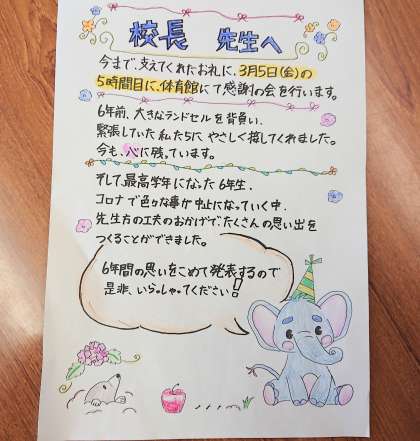 校長 先生へ
今まで、支えてくれたお礼に、3月5日(金)の
5時間目に、体育館にて感謝の会を行います。
6年前、大きなランドセルを背負い、
緊張していた私たちに、やさしく接してくれました。
今も、心に残っています。
そして、最高学年になった6年生、
コロナで色々な事が中止になっていく中、
先生方の工夫のおかげで、たくさんの思い出を
つくることができました。
6年間の思いをこめて発表するので
是非、いらっしゃてください!